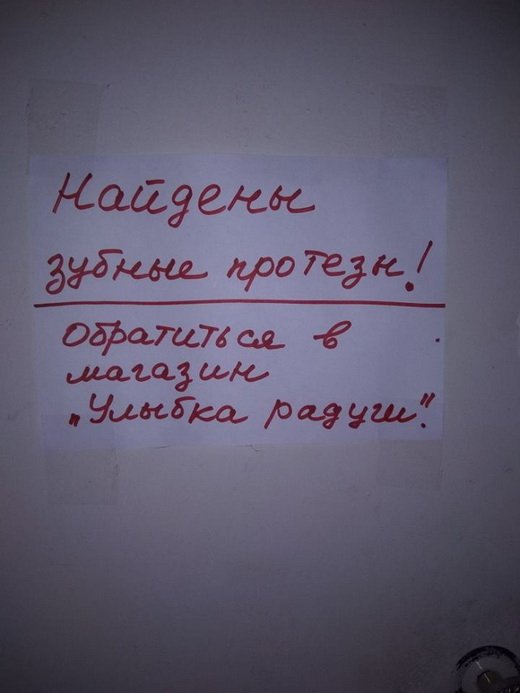 Найдены
зубные протезы!
Обратиться в
магазин
„Улыбка радуги".